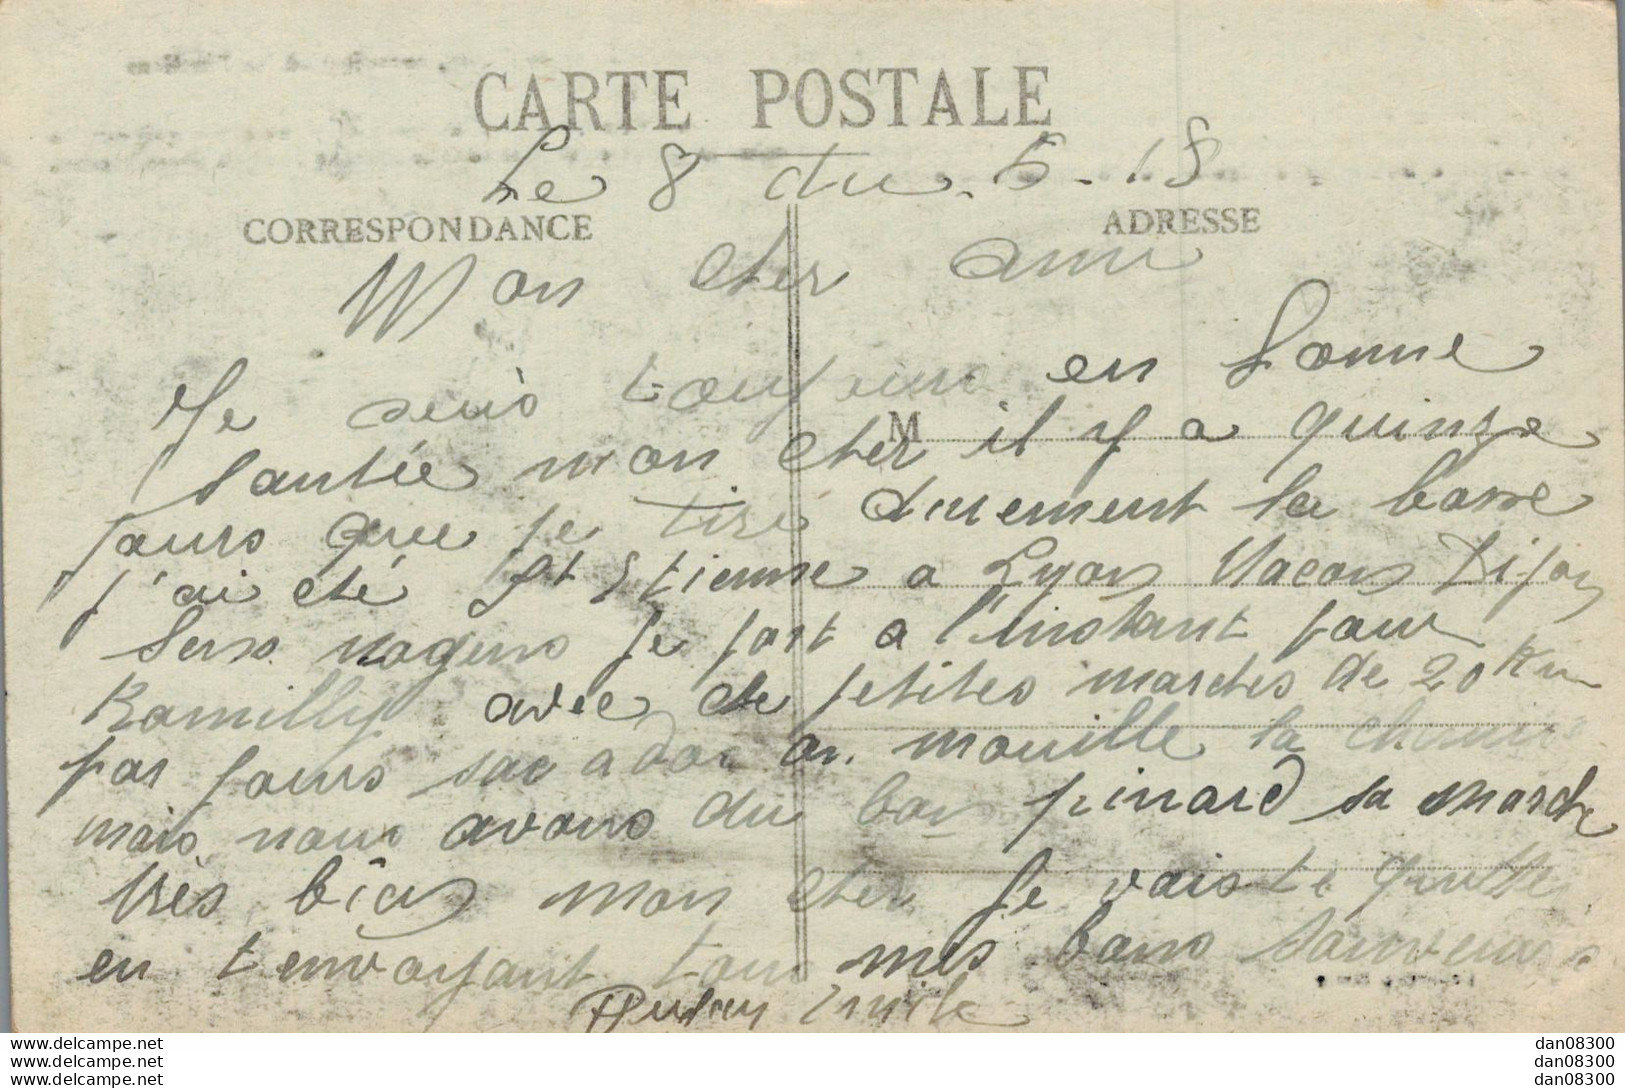 CARTE POSTALE
Le 8 du. 5. 18
CORRESPONDANCE
ADRESSE
Mon cher ami
Je suis toujours en bonne
M
santée mon cher il y a quinze
jours que je tire durement la
j'ai été St Etienne a Lyon Macon Dijon
Sens je part a l'instant pour
Romilly avec de petites marches de 20 Km
par jours sac a dos on mouille la chemise
mais nous avons du bon pinard sa marche
très bien mon cher Je vais te quitter
en t envoyant tou mes bons souvenirs
Emile
dan08300
dan08300
dan08300
www.delcampe.net
www.delcampe.net
www.delcampe.net